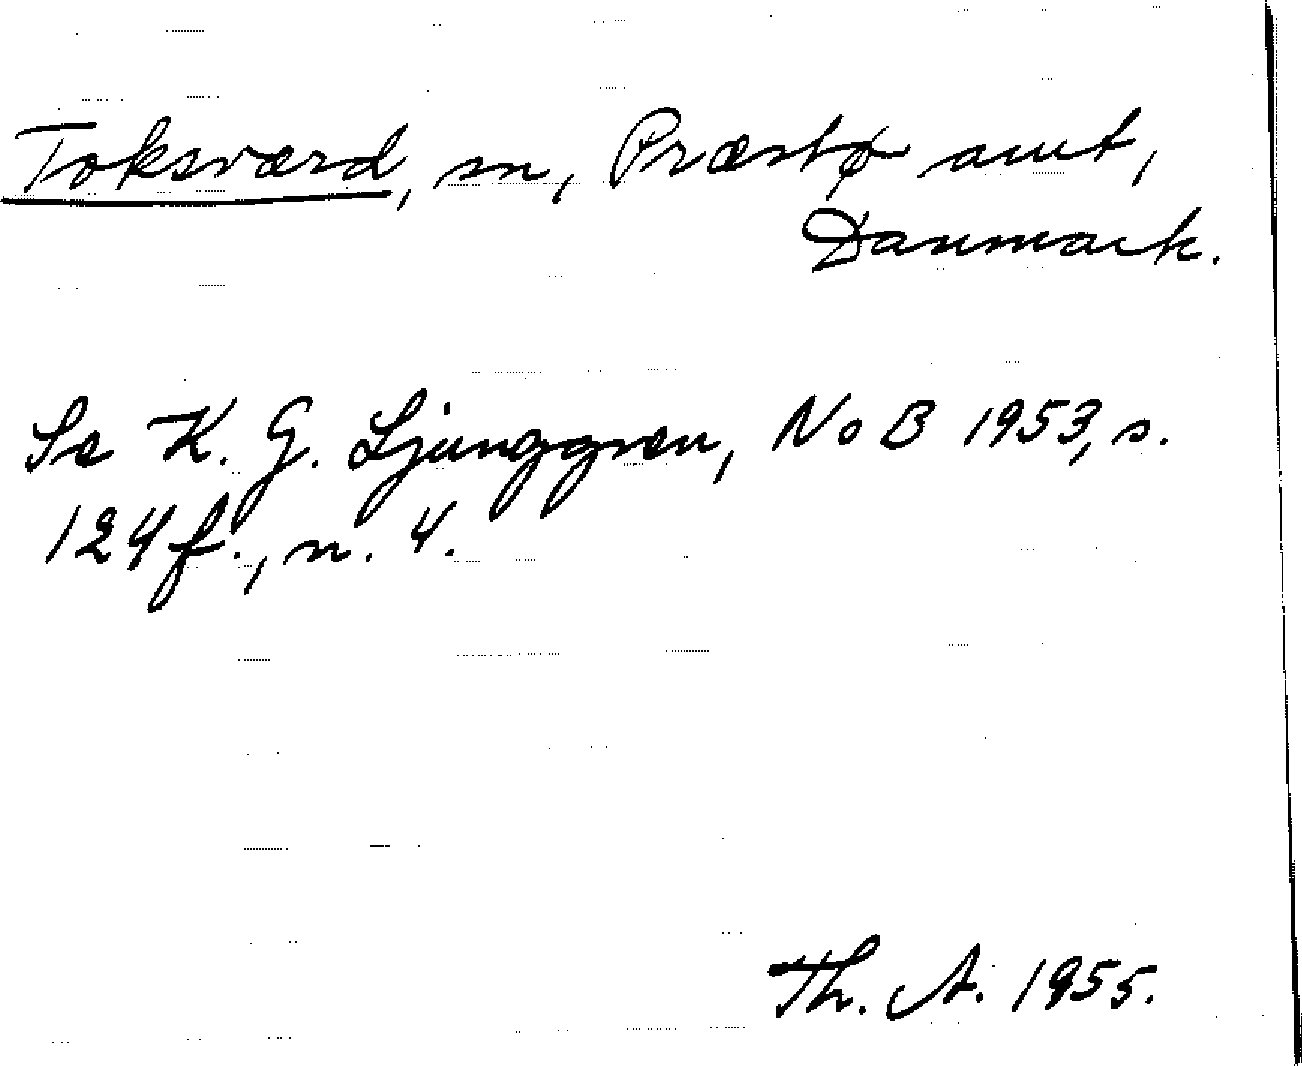 Toksværd, sn, Præstø amt,
Danmark.
Se K. G. Ljunggren, NoB 1953, s.
124 f., n. 4.
Th. A. 1955.